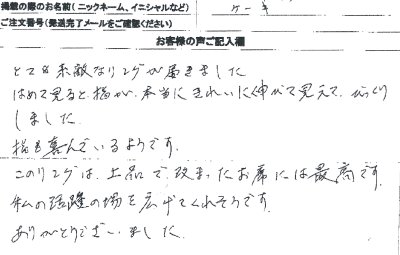 掲載の際のお名前(ニックネーム、イニシャルなど)
ご注文番号(発送完了メールをご確認ください)
ケーキ
お客様の声ご記入欄
とても素敵なリングが届きました
はめて見ると、指が、本当にきれいに伸びて見えて、びっくり
しました。
指も喜んでいるようです。
このリングは、上品で改まったお席には最高です。
私の活躍の場を広げてくれそうです。
ありがとうございました。